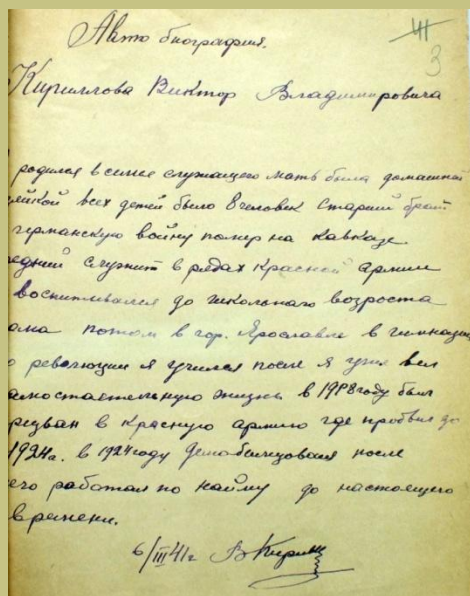 III
3
Авто биография.
Кириллова Виктор Владимировича
родился в семье служащего мать была домашней
всех детей было 8 человек старший брат
германскую войну помер на Кавказе.
едний служит в рядах Красной армии
воспитывался до школьнаго возроста
ома потом в гор. Ярославле в гимназии
о революции я учился после я уже вел
амостоятельную жизнь в 1918 году был
ризван в Красную армию где пробыл до
1924 г. в 1924 году демобилизовался после
его работал по найму до настоящего
времени.
6/III 41 г